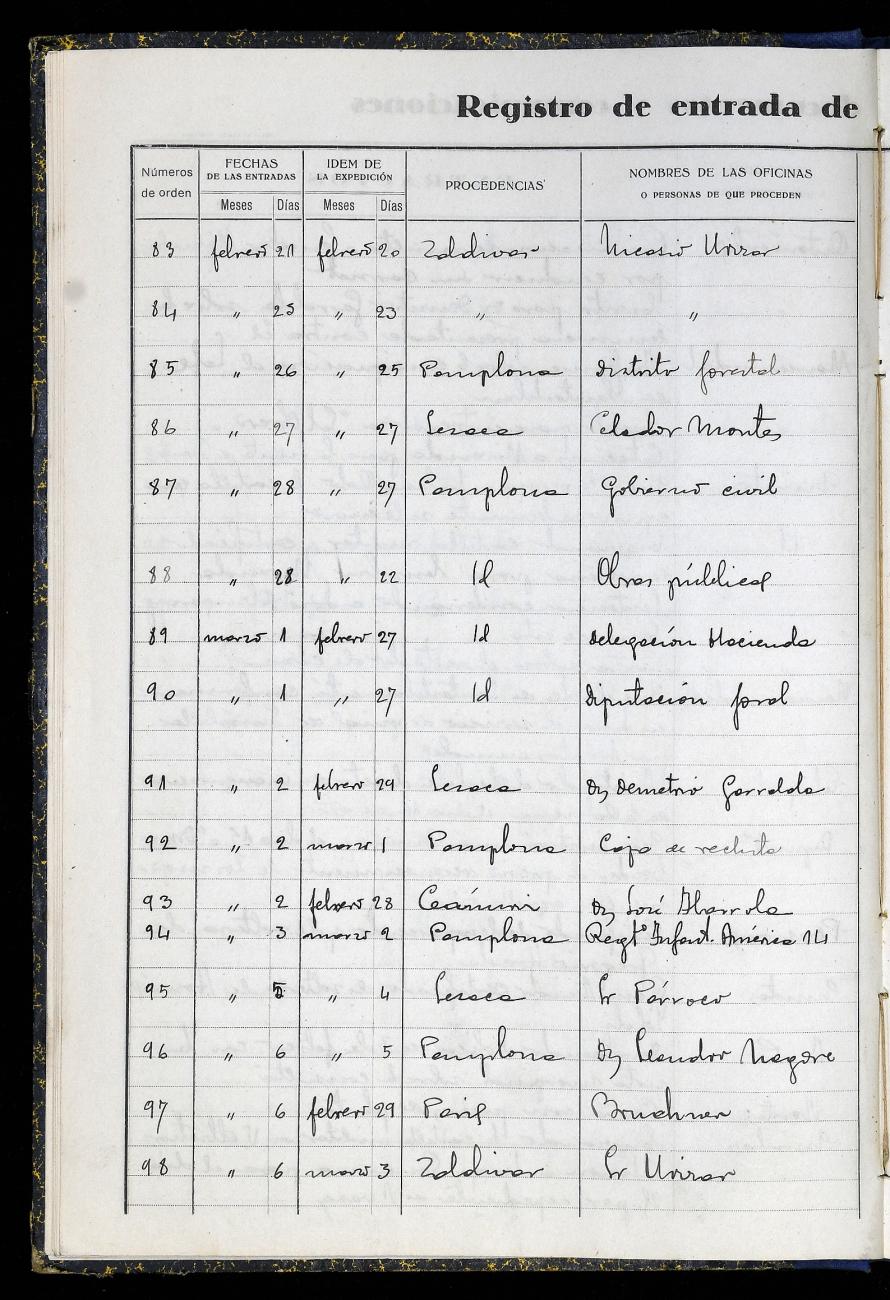 Registro de entrada de
Números de orden
FECHAS DE LAS ENTRADAS
IDEM DE LA EXPEDICIÓN
PROCEDENCIAS
NOMBRES DE LAS OFICINAS O PERSONAS DE QUE PROCEDEN
Meses Días Meses Días
83 febrero 21 febrero 20 Zaldivar Nicasio Urizar
84 " 25 " 23 " "
85 " 26 " 25 Pamplona Distrito forestal
86 " 27 " 27 Lesaca Celador Montes
87 " 28 " 27 Pamplona Gobierno civil
88 " 28 " 22 Id Obras públicas
89 marzo 1 febrero 27 Id Delegación Hacienda
90 " 1 " 27 Id Diputación foral
91 " 2 febrero 29 Lesaca Dn Demetrio Garralda
92 " 2 marzo 1 Pamplona Caja de recluta
93 " 2 febrero 28 Ceánuri Dn José Ibarrola
94 " 3 marzo 2 Pamplona Regto Infant. América 14
95 " 5 " 4 Lesaca Sr Párroco
96 " 6 " 5 Pamplona Dn Leandro Nagore
97 " 6 febrero 29 Paris Bruchner
98 " 6 marzo 3 Zaldivar Sr Urizar